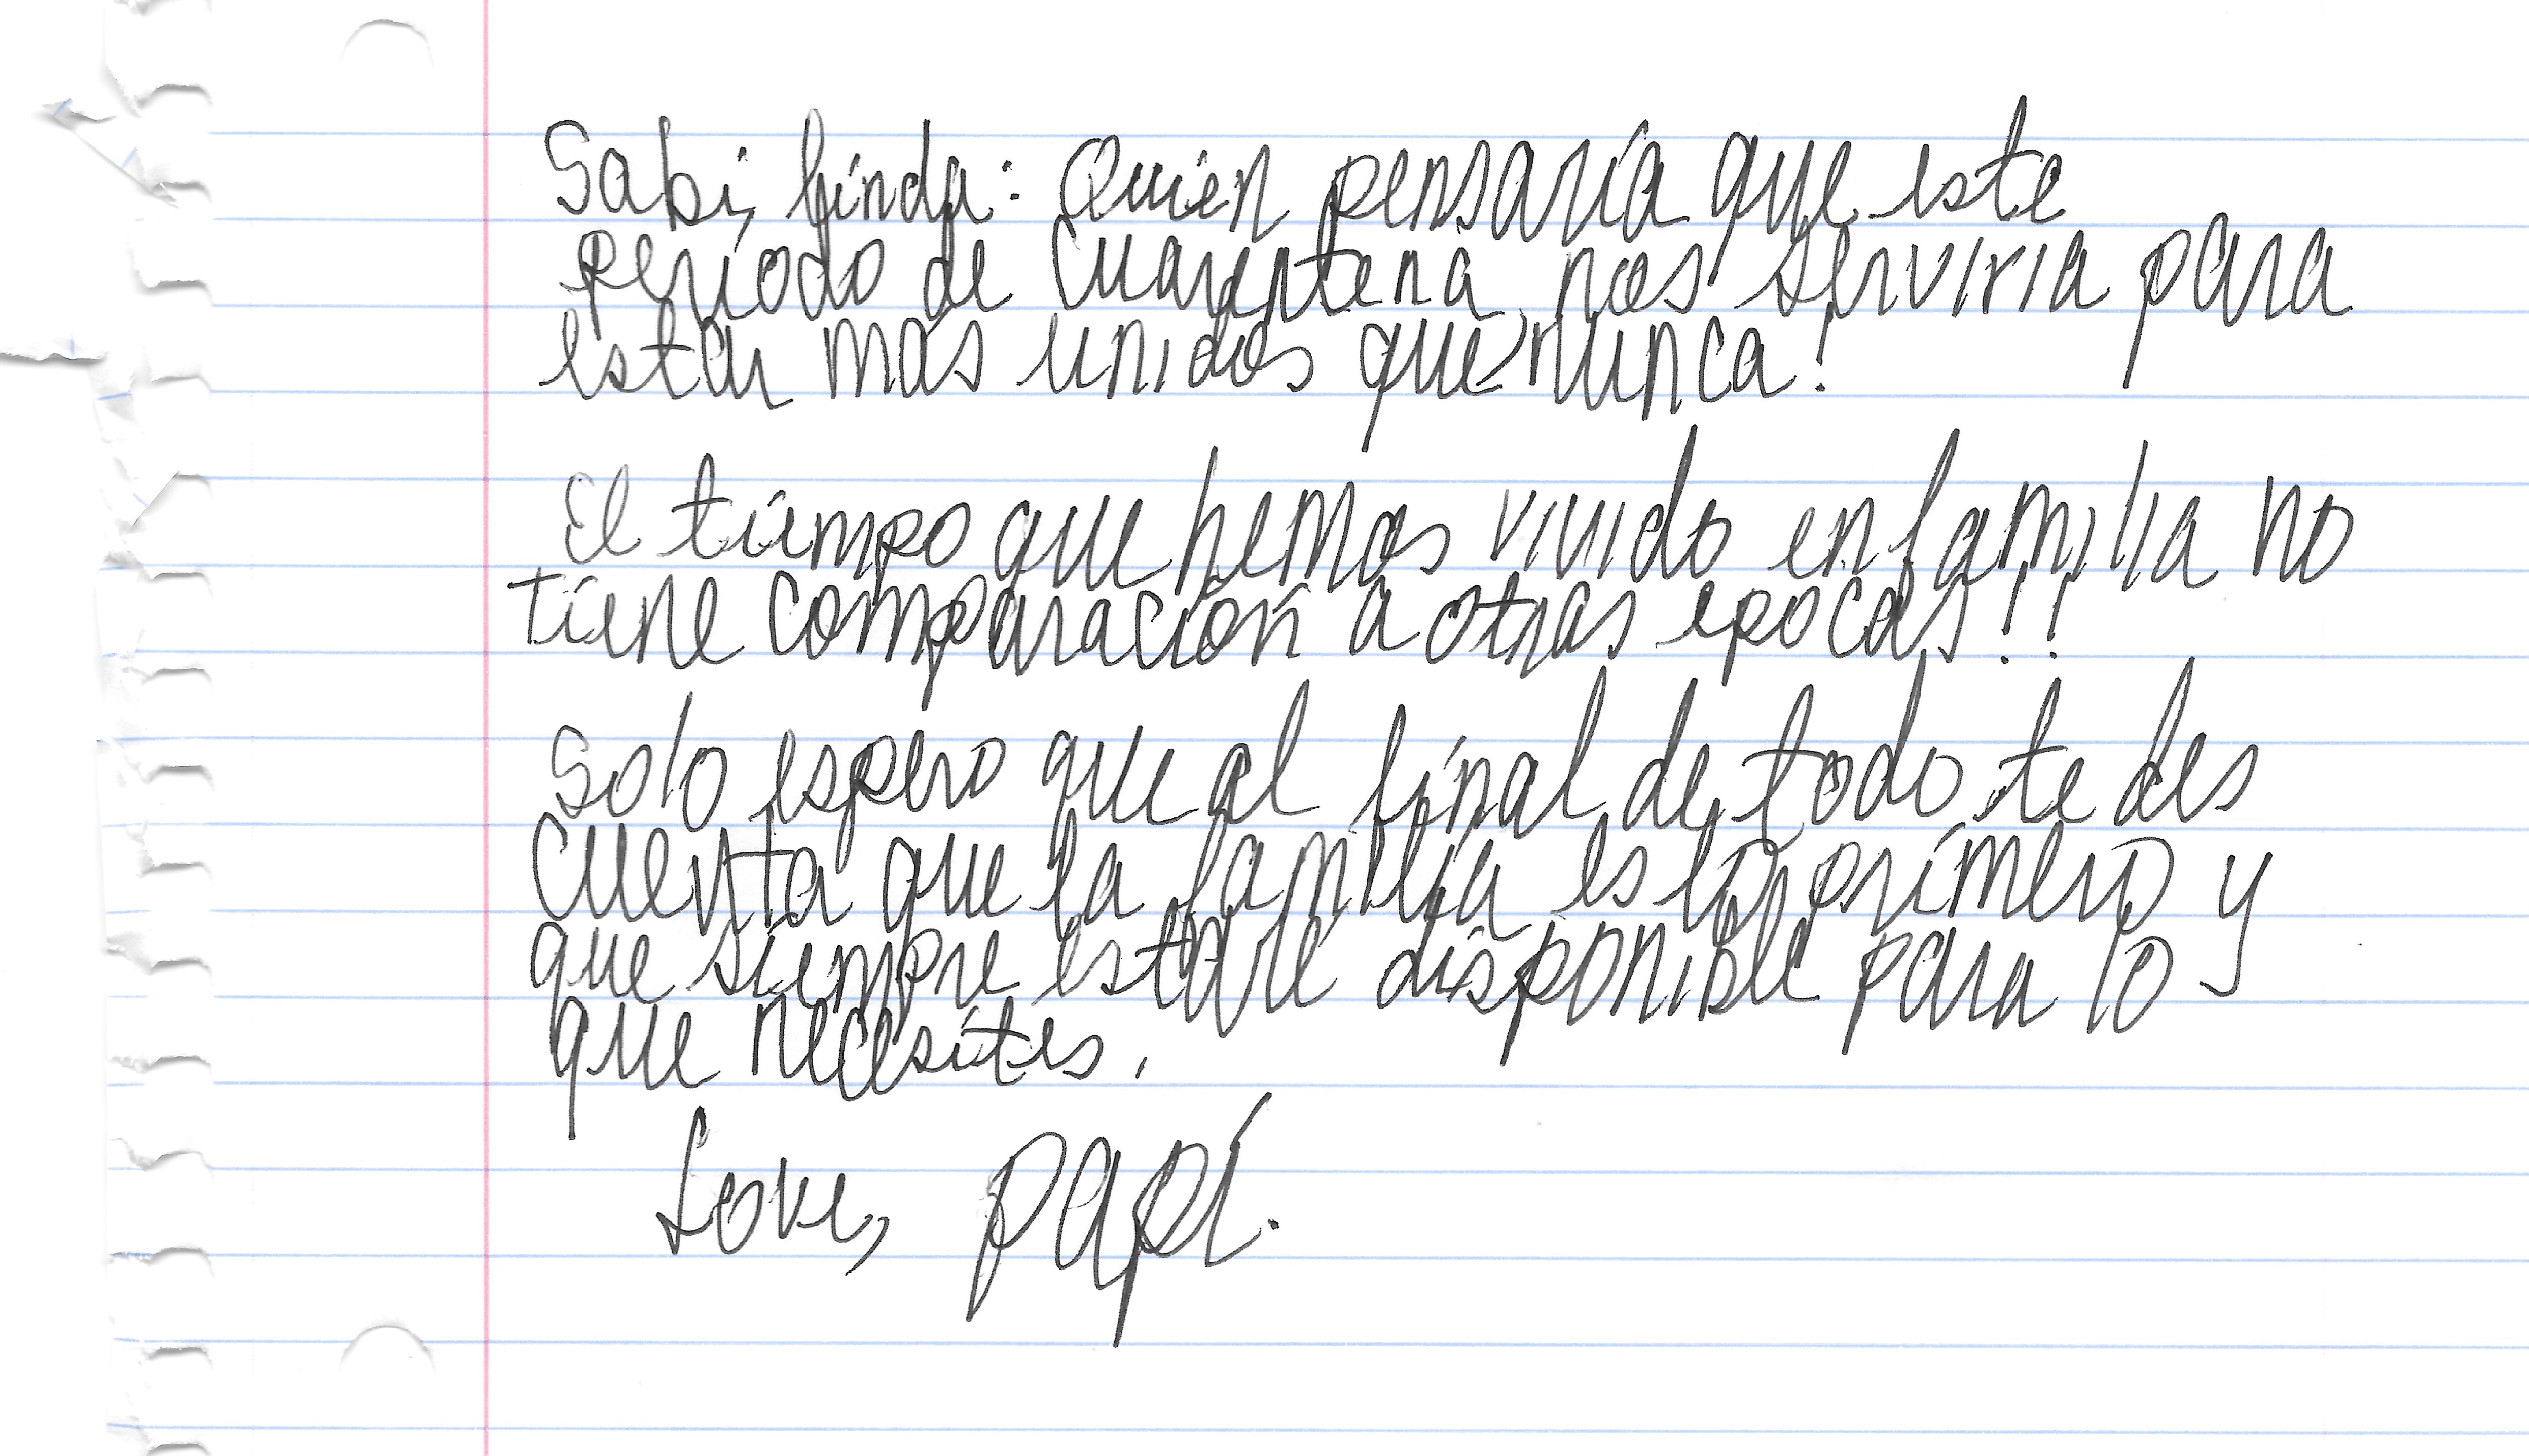 Sabi, linda: Quien pensaría que este
período de cuarentena nos serviria para
estar mas unidos que nunca!
El tiempo que hemos vivido en familia no
tiene comparación a otras epocas!!
Solo espero que al final de todo te des
cuenta que la familia es lo primero y
que siempre estaré disponible para lo
que necesites.
Love, papí.